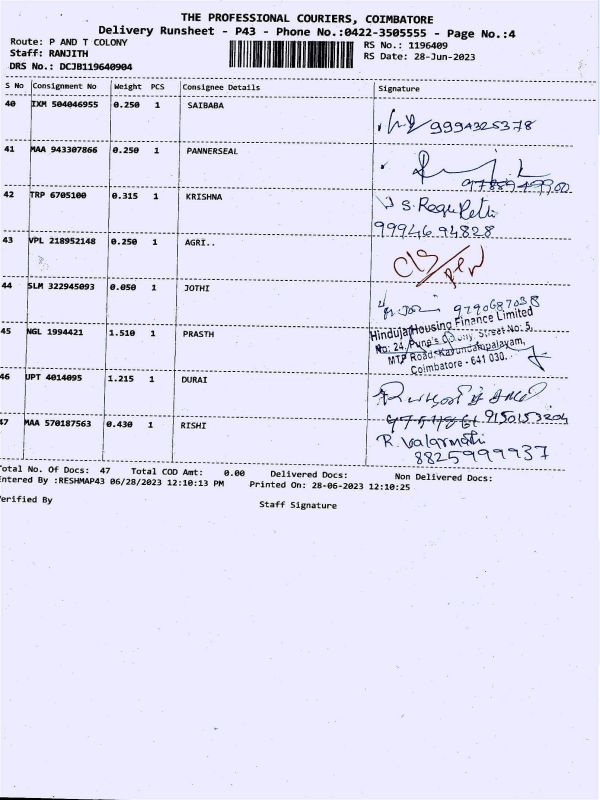 THE PROFESSIONAL COURIERS, COIMBATORE
Delivery Runsheet - P43 - Phone No.:0422-3505555 - Page No.:4
Route: P AND T COLONY
RS No.: 1196409
Staff: RANJITH
RS Date: 28-Jun-2023
DRS No.: DCJB119640904
S No Consignment No Weight PCS Consignee Details Signature
40 IXM 504046955 0.250 1 SAIBABA
9994325378
41 MAA 943307866 0.250 1 PANNERSEAL
42 TRP 6705100 0.315 1 KRISHNA
99946 94828
43 VPL 218952148 0.250 1 AGRI..
44 SLM 322945093 0.050 1 JOTHI
9790687038
Hinduja Housing Finance Limited
45 NGL 1994421 1.510 1 PRASTH
No: 24, Street No: 5,
MTP Road,
Coimbatore - 641 030.
46 UPT 4014095 1.215 1 DURAI
9150153204
47 MAA 570187563 0.430 1 RISHI
R. Valarmathi
8825999937
Total No. Of Docs: 47 Total COD Amt: 0.00 Delivered Docs: Non Delivered Docs:
Entered By :RESHMAP43 06/28/2023 12:10:13 PM Printed On: 28-06-2023 12:10:25
Verified By
Staff Signature